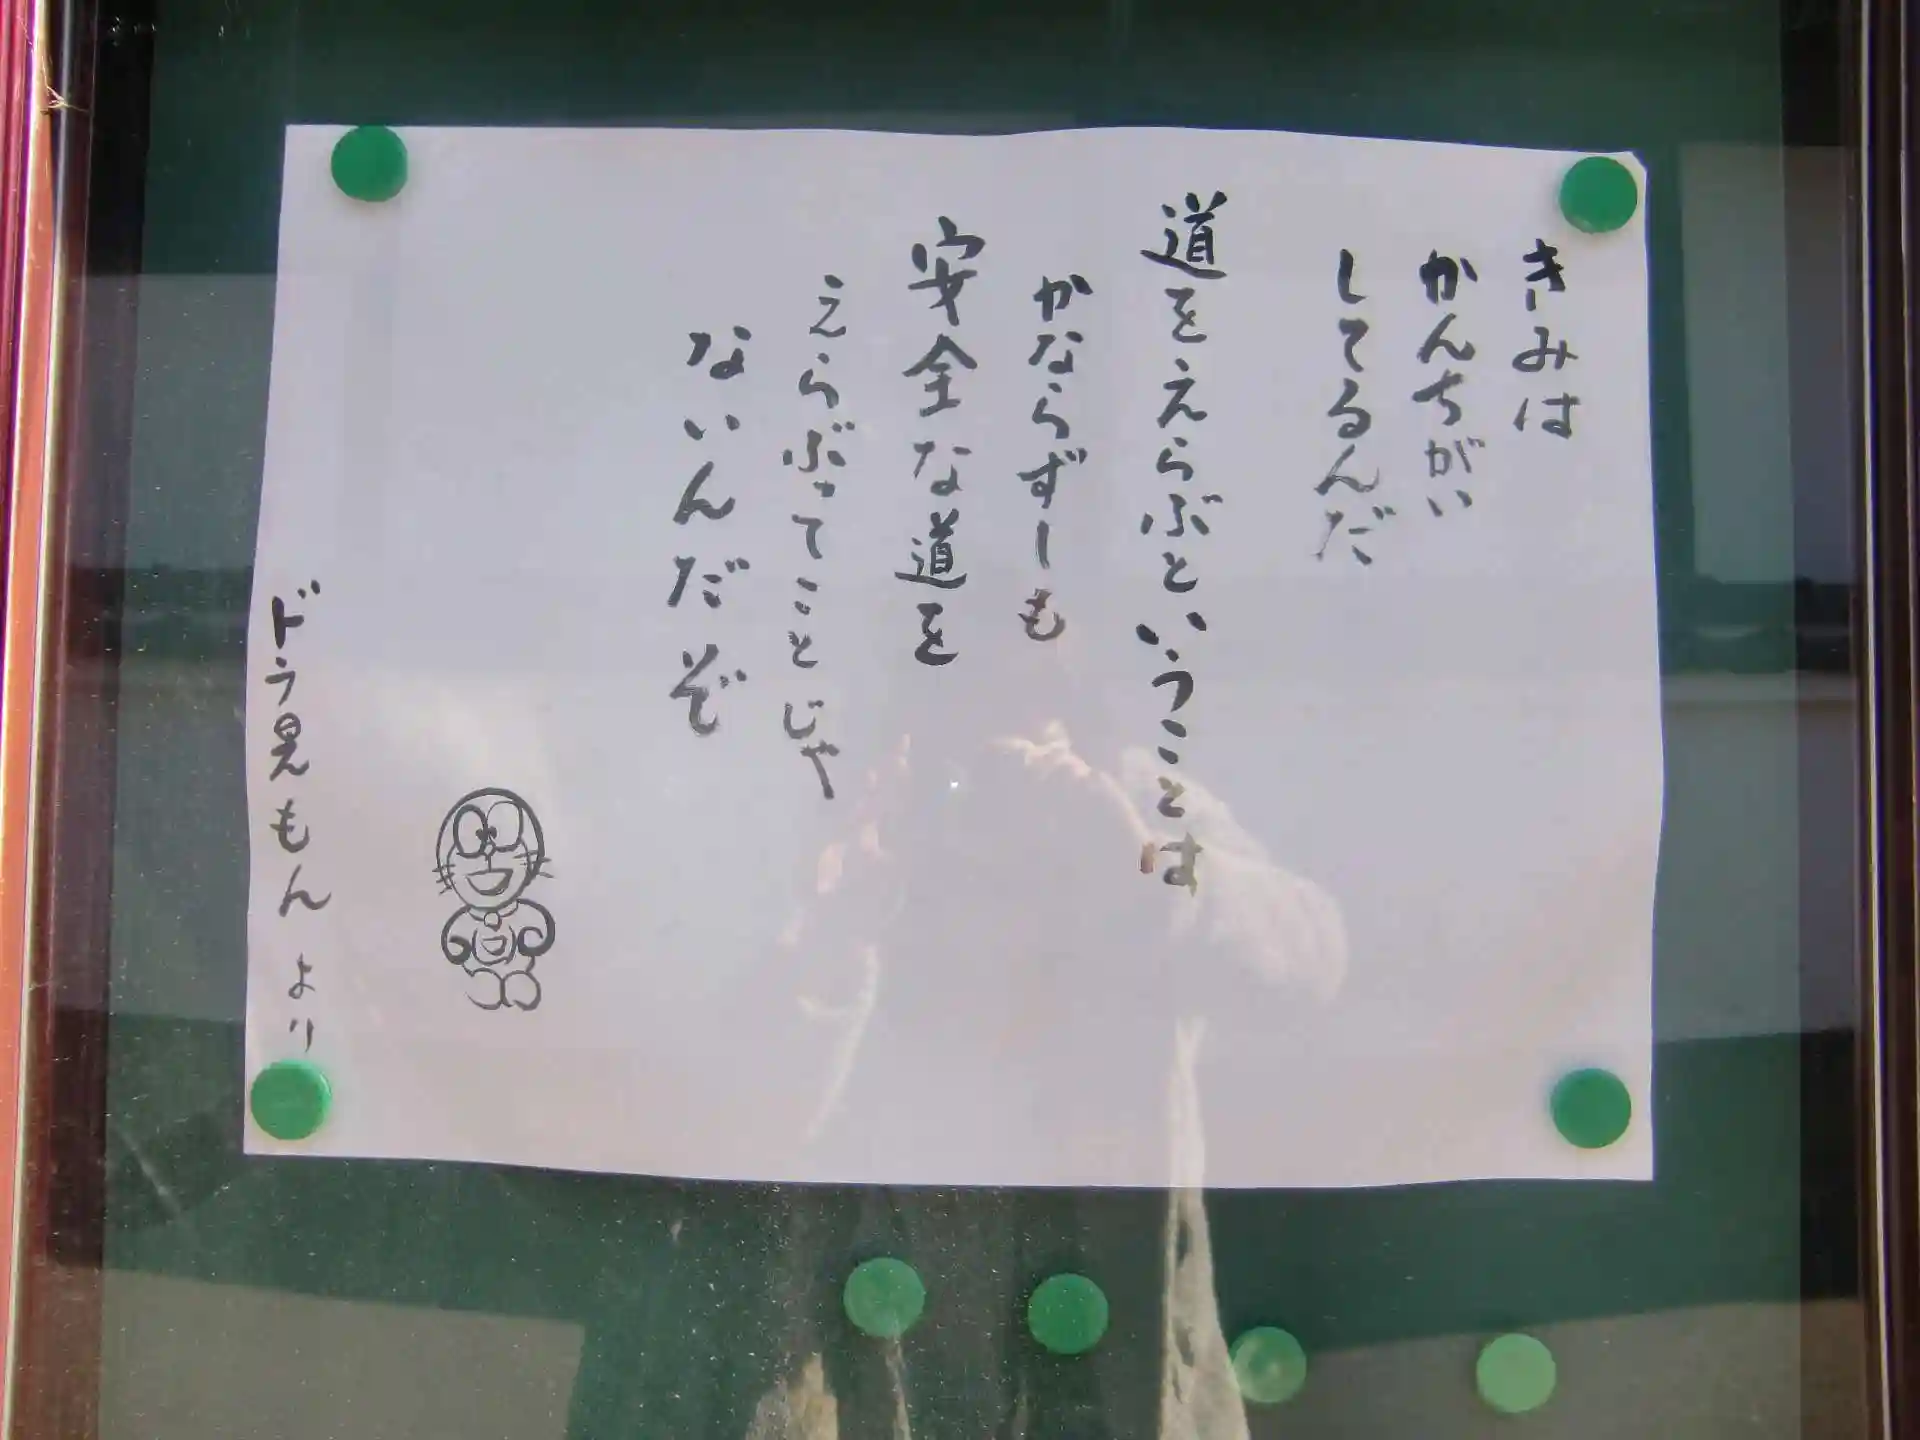 きみは
かんちがい
してるんだ
道をえらぶということは
かならずしも
安全な道を
えらぶってことじゃ
ないんだぞ
ドラえもんより